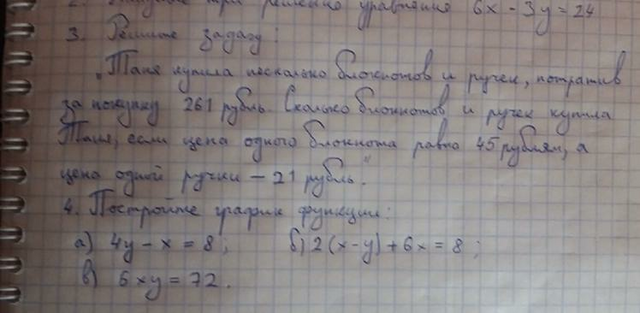 при решении уравнения 6x - 3y = 24
3. Решите задачу:
„Таня купила несколько блокнотов и ручек, потратив
за покупку 261 рубль. Сколько блокнотов и ручек купила
Таня, если цена одного блокнота равна 45 рублям, а
цена одной ручки – 21 рубль."
4. Постройте график функции:
а) 4y - x = 8; б) 2(x-y) + 6x = 8;
в) 6xy = 72.